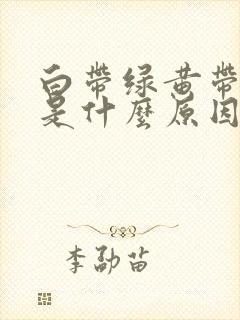 白带绿黄带
是什麽原因
李劭苗